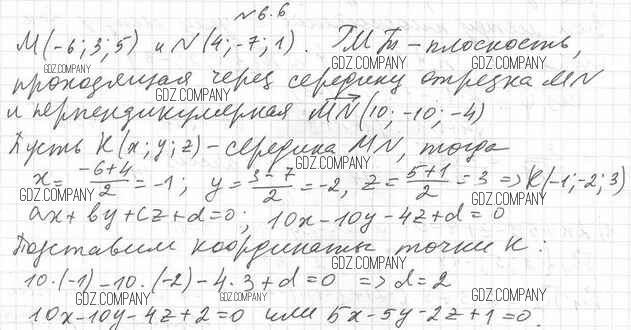 №6.6
M(-6;3;5) и N(4;-7;1). ГМТ - плоскость,
проходящая через середину отрезка MN
и перпендикулярная MN(10; -10; -4)
Пусть K(x;y;z) - середина MN, тогда
x = (-6+4)/2 = -1; y = (3-7)/2 = -2, z = (5+1)/2 = 3 => K(-1;-2;3)
ax+by+cz+d=0; 10x-10y-4z+d=0
Подставим координаты точки K:
10·(-1)-10·(-2)-4·3+d=0 => d=2
10x-10y-4z+2=0 или 5x-5y-2z+1=0.
GDZ.COMPANY
GDZ.COMPANY
GDZ.COMPANY
GDZ.COMPANY
GDZ.COMPANY
GDZ.COMPANY
GDZ.COMPANY
GDZ.COMPANY
GDZ.COMPANY
GDZ.COMPANY
GDZ.COMPANY
GDZ.COMPANY
GDZ.COMPANY